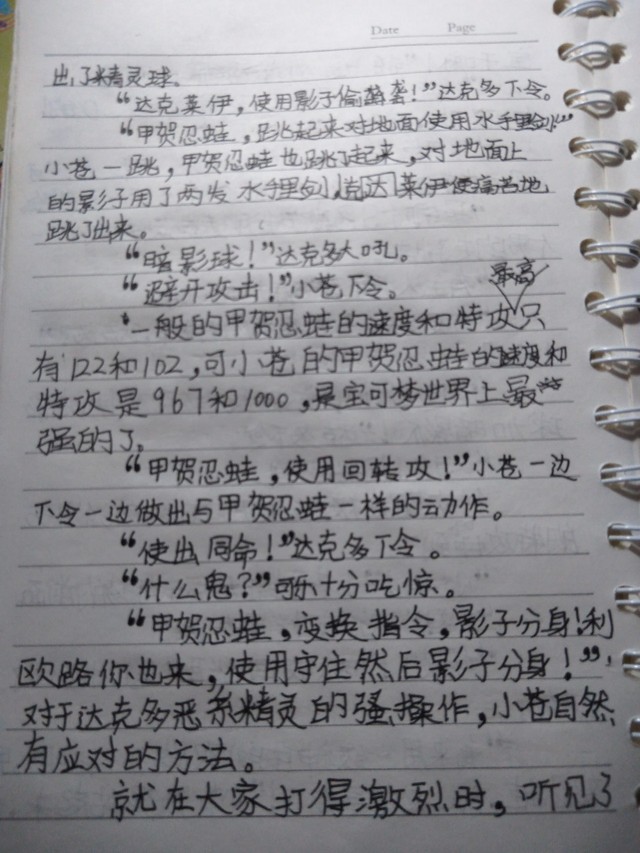 Date Page
出了精灵球。
“达克莱伊，使用影子偷袭！”达克多下令。
“甲贺忍蛙，跳起来对地面使用水手里剑”
小苍一跳，甲贺忍蛙也跳了起来，对地面上
的影子用了两发水手里剑，克达莱伊便痛苦地
跳了出来。
“暗影球！”达克多大吼。
“避开攻击！”小苍下令。
最高
一般的甲贺忍蛙的速度和特攻只
有122和102，可小苍的甲贺忍蛙的速度和
特攻是967和1000，是宝可梦世界上最
强的了。
“甲贺忍蛙，使用回转攻！”小苍一边
下令一边做出与甲贺忍蛙一样的动作。
“使出同命！”达克多下令。
“什么鬼？”可乐十分吃惊。
“甲贺忍蛙，变换指令，影子分身！利
欧路你也来，使用守住然后影子分身！”，
对于达克多恶系精灵的骚操作，小苍自然
有应对的方法。
就在大家打得激烈时，听见了